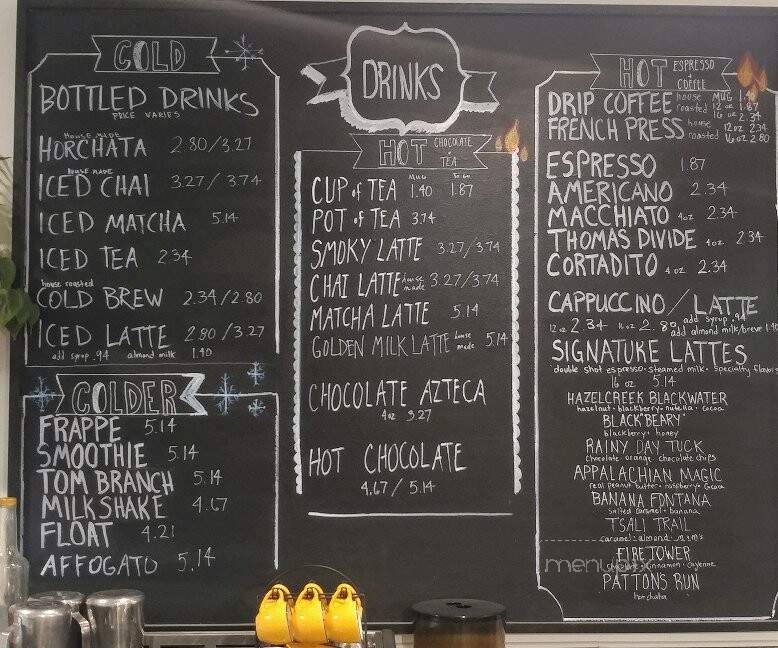 COLD
BOTTLED DRINKS
PRICE VARIES
HOUSE MADE
HORCHATA 2.80/3.27
house made
ICED CHAI 3.27/3.74
ICED MATCHA 5.14
ICED TEA 2.34
house roasted
COLD BREW 2.34/2.80
ICED LATTE 2.80/3.27
add syrup .94 almond milk 1.40
COLDER
FRAPPE 5.14
SMOOTHIE 5.14
TOM BRANCH 5.14
MILKSHAKE 4.67
FLOAT 4.21
AFFOGATO 5.14
DRINKS
HOT CHOCOLATE + TEA
CUP of TEA MUG 1.40 TO GO 1.87
POT of TEA 3.74
SMOKY LATTE 3.27/3.74
CHAI LATTE house made 3.27/3.74
MATCHA LATTE 5.14
GOLDEN MILK LATTE house made 5.14
CHOCOLATE AZTECA
4oz 3.27
HOT CHOCOLATE
4.67/5.14
HOT ESPRESSO + COFFEE
DRIP COFFEE house roasted MUG 1.40 12 oz 1.87 16 oz 2.34
FRENCH PRESS house roasted 12oz 2.34 16oz 2.80
ESPRESSO 1.87
AMERICANO 2.34
MACCHIATO 4oz 2.34
THOMAS DIVIDE 4oz 2.34
CORTADITO 4oz 2.34
CAPPUCCINO/LATTE
12oz 2.34 16oz 2.80 add syrup .94
add almond milk/breve 1.40
SIGNATURE LATTES
double shot espresso · steamed milk · specialty flavors
16 oz 5.14
HAZELCREEK BLACKWATER
hazelnut · blackberry · nutella · cocoa
BLACK "BEARY"
blackberry · honey
RAINY DAY TUCK
chocolate · orange · chocolate chips
APPALACHIAN MAGIC
real peanut butter · raspberry · cocoa
BANANA FONTANA
salted caramel · banana
TSALI TRAIL
caramel · almond · m+m's
FIRE TOWER
cinnamon · cayenne
PATTONS RUN
horchata